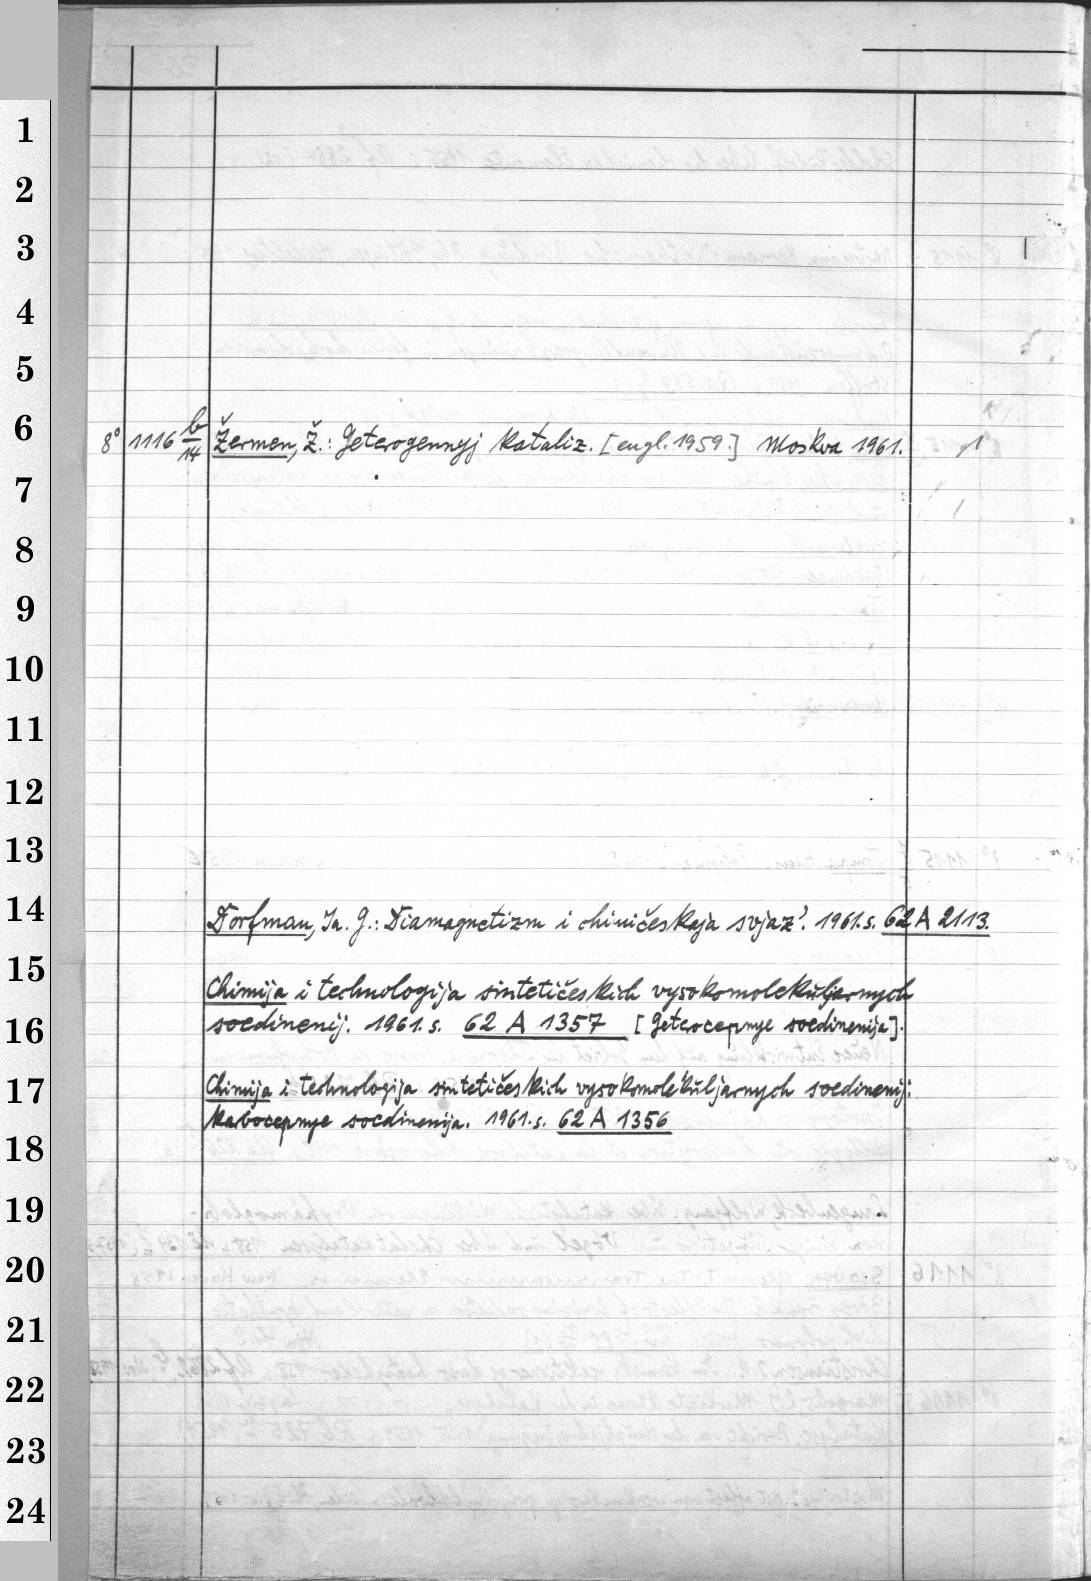 1
2
3
4
5
6
8° 1116 b/14 Žermen, Ž.: Geterogennyj kataliz. [engl. 1959.] Moskva 1961. 1
7
8
9
10
11
12
13
14
Dorfman, Ja. G.: Diamagnetizm i chimičeskaja svjaz'. 1961. s. 62 A 2113.
15
Chimija i technologija sintetičeskich vysokomolekuljarnych
16
soedinenij. 1961. s. 62 A 1357 [Geterocepnye soedinenija].
17
Chimija i technologija sintetičeskich vysokomolekuljarnych soedinenij.
Karbocepnye soedinenija. 1961. s. 62 A 1356
18
19
20
21
22
23
24